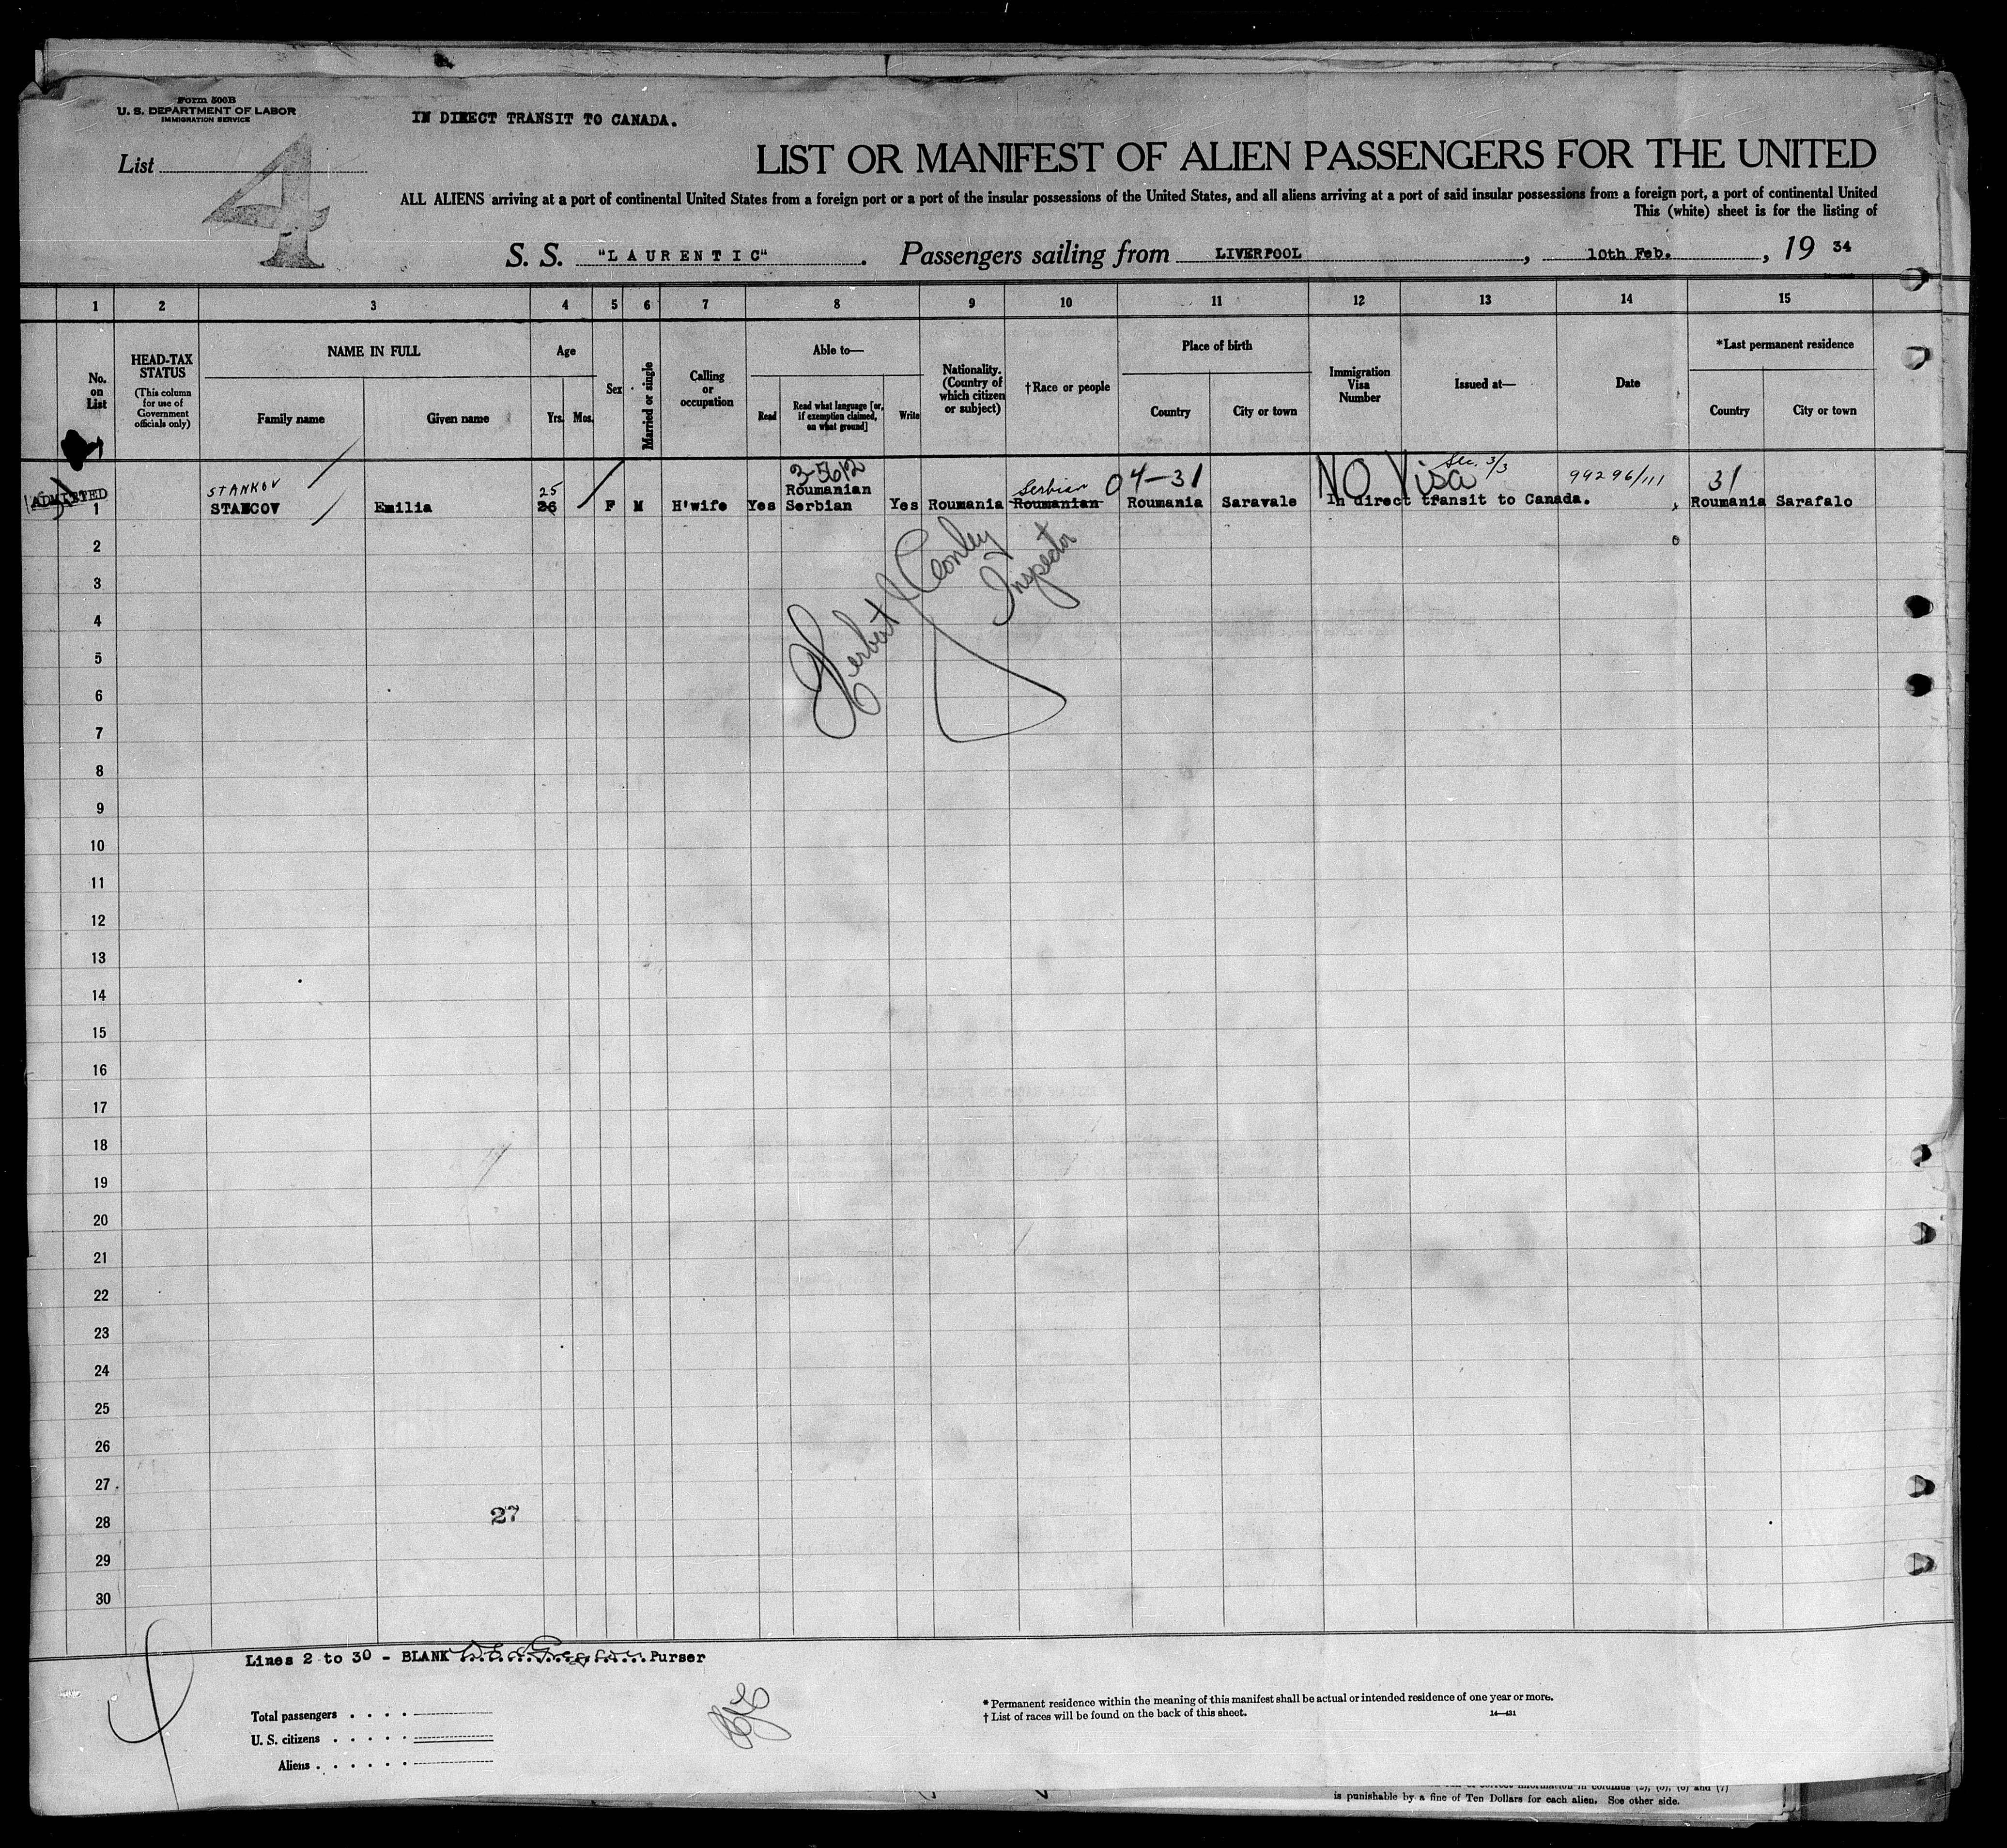 Form 500B
U. S. DEPARTMENT OF LABOR
IMMIGRATION SERVICE
IN DIRECT TRANSIT TO CANADA.
List 4
LIST OR MANIFEST OF ALIEN PASSENGERS FOR THE UNITED
ALL ALIENS arriving at a port of continental United States from a foreign port or a port of the insular possessions of the United States, and all aliens arriving at a port of said insular possessions from a foreign port, a port of continental United
This (white) sheet is for the listing of
S. S. "LAURENTIC". Passengers sailing from LIVERPOOL, 10th Feb., 19 34
1 2 3 4 5 6 7 8 9 10 11 12 13 14 15
No. on List
HEAD-TAX STATUS
(This column for use of Government officials only)
NAME IN FULL
Family name
Given name
Age
Yrs. Mos.
Sex
Married or single
Calling or occupation
Able to—
Read
Read what language [or, if exemption claimed, on what ground]
Write
Nationality. (Country of which citizen or subject)
†Race or people
Place of birth
Country
City or town
Immigration Visa Number
Issued at—
Date
*Last permanent residence
Country
City or town
3-5612
04-31
NO Visa
Sec. 3/3
99296/111
31
ADMITTED
STANKOV
25
Roumanian
Serbian
1 STANCOV Emilia 26 F M H'wife Yes Serbian Yes Roumania Roumanian Roumania Saravale In direct transit to Canada. Roumania Sarafalo
2
3
4
5
6
7
8
9
10
11
12
13
14
15
16
17
18
19
20
21
22
23
24
25
26
27
28
29
30
Inspector
27
Lines 2 to 30 - BLANK Purser
Total passengers
U. S. citizens
Aliens
* Permanent residence within the meaning of this manifest shall be actual or intended residence of one year or more.
† List of races will be found on the back of this sheet.
14—431
is punishable by a fine of Ten Dollars for each alien. See other side.